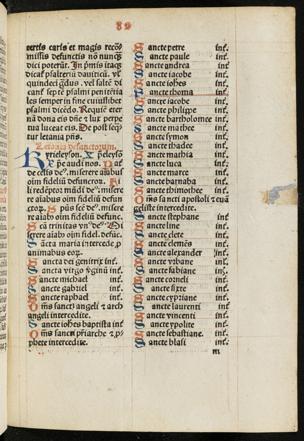 89
certis caris et magis recõ
missis defunctis nõ nunq̃
dici poterũt. In pmis itaq̃
dicat psalteriũ dauiticũ. vl̃
quindeci gdus. vel saltẽ di
cant septẽ psalmi penitẽtia
les semper in fine cuiuslibet
psalmi dicẽdo. Requiẽ eter
nã dona eis dñe ⁊ lux perpe
tua luceat eis. De post seq̃
tur letania pñs.
Letania defunctorum.
Kyrieleyson. Xp̃eleysõ
Xp̃e audi nos. Pat̃
de celis de⁹. miserere aĩabus
oĩm fidelium defunc. Fi
li redẽptor mũdi de⁹. misere
re aĩabus oĩm fideliũ defun
ctoꝝ. Sp̃us sctẽ de⁹. misere
re aĩab⁹ oĩm fideliũ defunc.
Sctã trinitas vn⁹ de⁹. Mi
serere aĩab⁹ fidel. defunc.
Sctã maria intercede p
animabus eoꝝ.
Sancta dei genitrix inf.
Sancta virgo vginũ inf.
Sancte michael inf.
Sancte gabriel inf.
Sancte raphael inf.
Oms̃ sancti angeli ⁊ arch
angeli intercedite.
Sancte ioh̃es baptista inf
Oms̃ sancti p̃riarche ⁊ p̃
phete intercedite.
Sancte petre inf.
Sancte paule inf.
Sancte andrea inf.
Sancte iacobe inf.
Sancte ioh̃es inf.
Sancte thoma inf.
Sancte iacobe inf.
Sancte philippe inf.
Sancte bartholomee inf.
Sancte mathee inf.
Sancte symon inf.
Sancte thadee inf.
Sancte mathia inf.
Sancte luca inf.
Sancte marce inf.
Sancte barnaba inf.
Sancte thimothee inf.
Oms̃ sancti apostoli ⁊ euã
geliste intercedite.
Sancte stephane inf.
Sancte line inf.
Sancte clete inf.
Sancte clemẽs inf.
Sancte alexander inf.
Sancte vrbane inf.
Sancte fabiane inf.
Sancte corneli inf.
Sancte sixte inf.
Sancte cypriane inf.
Sancte laurenti inf.
Sancte vincenti inf.
Sancte ypolite inf.
Sancte sebastiane. inf.
Sancte blasi inf.
m